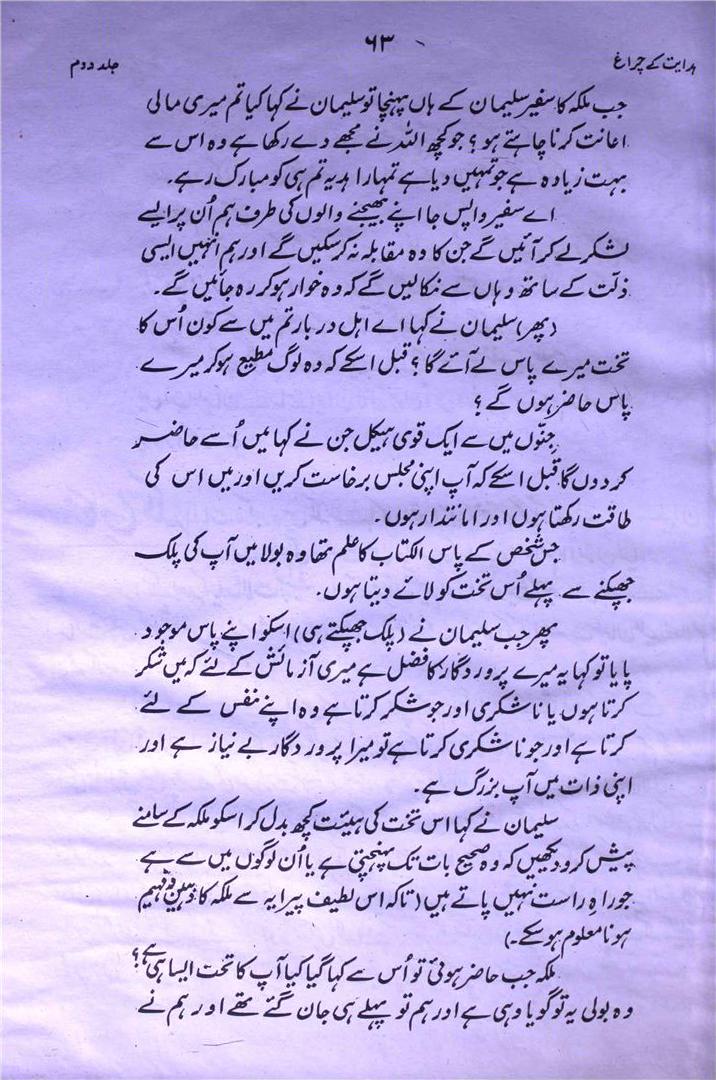 ہدایت کے چراغ ۶۳ جلد دوم
جب ملکہ کا سفیر سلیمان کے ہاں پہنچا تو سلیمان نے کہا کیا تم میری مالی
اعانت کرنا چاہتے ہو؟ جو کچھ اللہ نے مجھے دے رکھا ہے وہ اس سے
بہت زیادہ ہے جو تمہیں دیا ہے تمہارا ہدیہ تم ہی کو مبارک رہے۔
اے سفیر واپس جا اپنے بھیجنے والوں کی طرف ہم اُن پر ایسے
لشکر لے کر آئیں گے جن کا وہ مقابلہ نہ کر سکیں گے اور ہم انہیں ایسی
ذلّت کے ساتھ وہاں سے نکالیں گے کہ وہ خوار ہو کر رہ جائیں گے۔
(پھر) سلیمان نے کہا اے اہل دربار تم میں سے کون اُس کا
تخت میرے پاس لے آئے گا؟ قبل اسکے کہ وہ لوگ مطیع ہو کر میرے
پاس حاضر ہوں گے؟
جنّوں میں سے ایک قوی ہیکل جن نے کہا میں اُسے حاضر
کر دوں گا قبل اسکے کہ آپ اپنی مجلس برخاست کریں اور میں اس کی
طاقت رکھتا ہوں اور امانتدار ہوں۔
جس شخص کے پاس الکتاب کا علم تھا وہ بولا میں آپ کی پلک
جھپکنے سے پہلے اُس تخت کو لائے دیتا ہوں۔
پھر جب سلیمان نے (پلک جھپکتے ہی) اسکو اپنے پاس موجود
پایا تو کہا یہ میرے پروردگار کا فضل ہے میری آزمائش کے لئے کہ میں شکر
کرتا ہوں یا ناشکری اور جو شکر کرتا ہے وہ اپنے نفس کے لئے
کرتا ہے اور جو ناشکری کرتا ہے تو میرا پروردگار بے نیاز ہے اور
اپنی ذات میں آپ بزرگ ہے۔
سلیمان نے کہا اس تخت کی ہیئت کچھ بدل کر اسکو ملکہ کے سامنے
پیش کرو دیکھیں کہ وہ صحیح بات تک پہنچتی ہے یا اُن لوگوں میں سے ہے
جو راہِ راست نہیں پاتے ہیں (تاکہ اس لطیف پیرایہ سے ملکہ کا ذہین و فہیم
ہونا معلوم ہو سکے۔)
ملکہ جب حاضر ہوئی تو اُس سے کہا گیا کیا آپ کا تخت ایسا ہی ہے؟
وہ بولی یہ تو گویا وہی ہے اور ہم تو پہلے ہی جان گئے تھے اور ہم نے